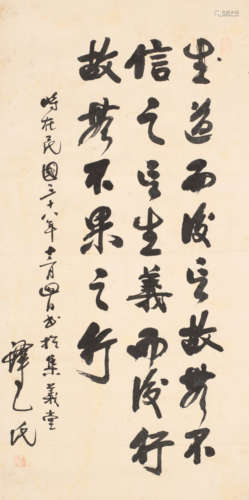 成道而後言故無不
信之言生義而後行
故無不果之行
時在民國三十八年十二月四日書於集義堂